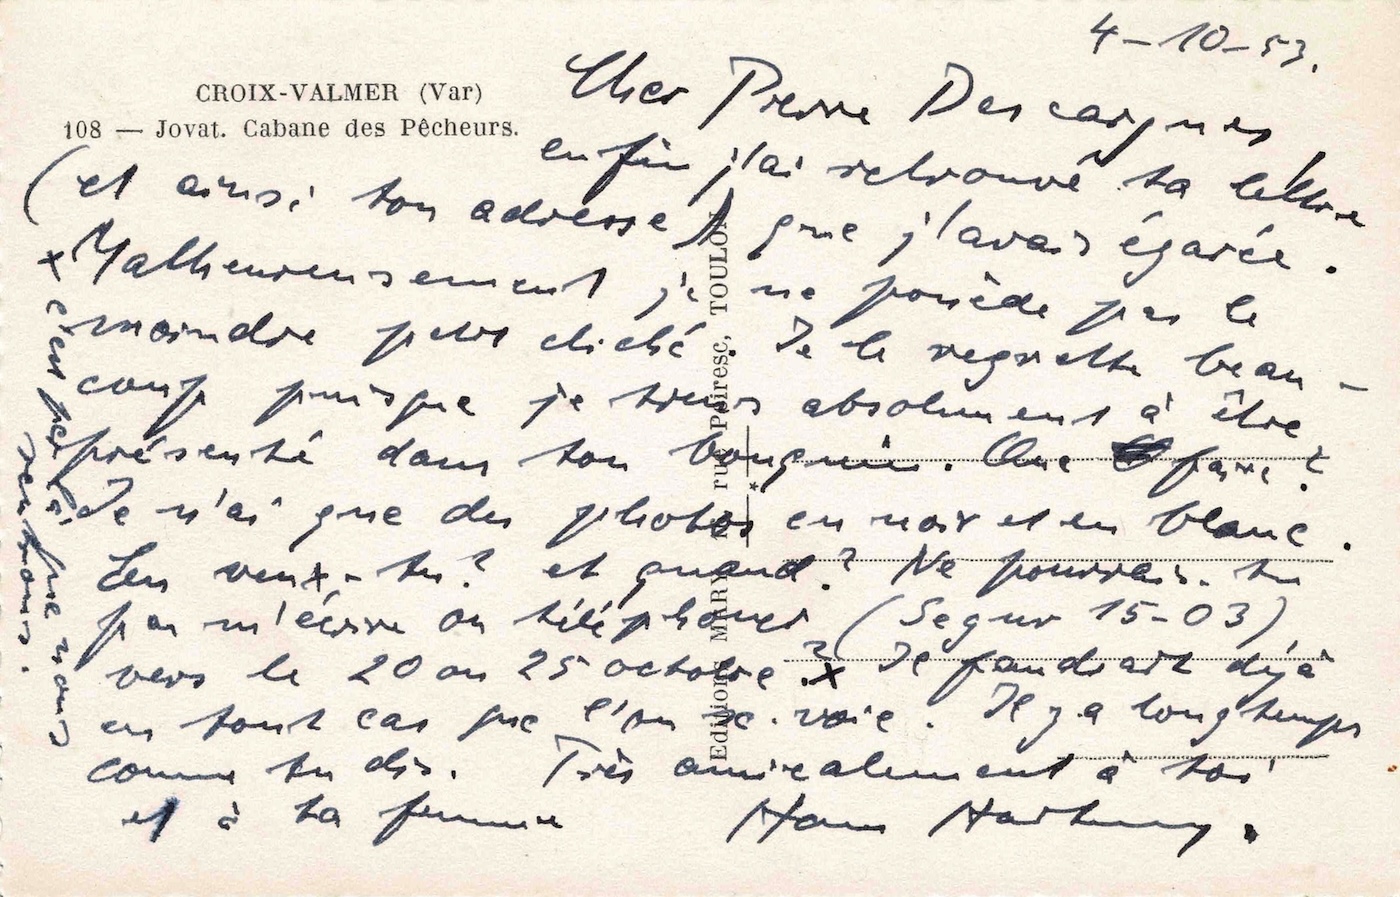 4-10-53.
CROIX-VALMER (Var)
108 — Jovat. Cabane des Pêcheurs.
Cher Pierre Descargues
enfin j'ai retrouvé ta lettre
(et ainsi ton adresse) que j'avais égarée.
Malheureusement je ne possède pas le
moindre petit cliché. Je le regrette beau-
coup puisque je tiens absolument à être
présenté dans ton bouquin. Que faire?
Je n'ai que des photos en noir et en blanc.
Les veux-tu? et quand? Ne pourrais-tu
pas m'écrire ou téléphoner (Segur 15-03)
vers le 20 ou 25 octobre? x Il faudrait déjà
en tout cas que l'on se voie. Il y a longtemps
comme tu dis. Très amicalement à toi
et à ta femme Hans Hartung.
x c'est par là que nous
rentrons.
Editions MAR rue Peiresc, TOULON